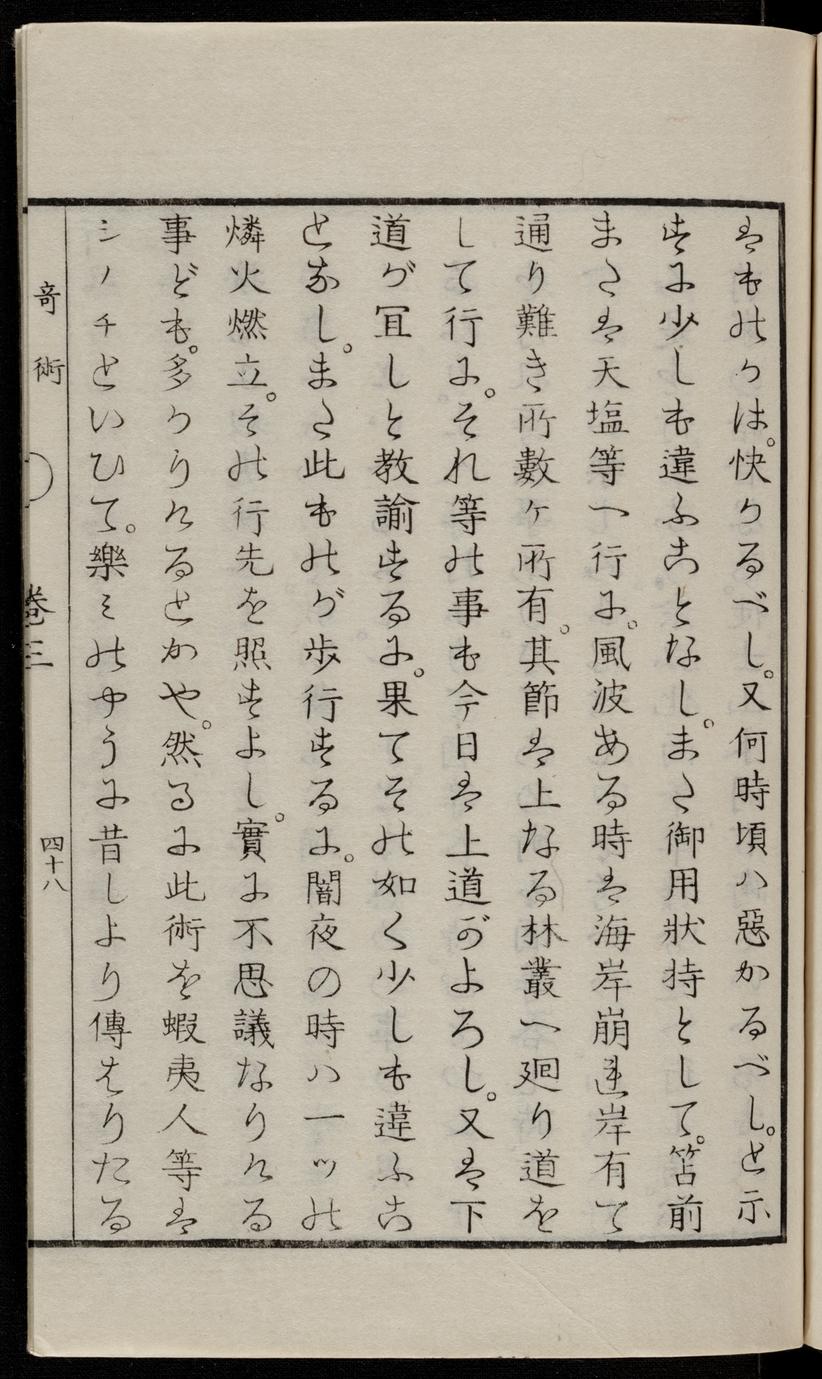 はものかは。快かるべし。又何時頃ハ惡かるべし。と示
すに少しも違ふことなし。また御用狀持として。笘前
または天塩等へ行に。風波ある時は海岸崩連岸有て
通り難き所數ヶ所有。其節は上なる林叢へ廻り道を
して行に。それ等の事も今日は上道がよろし。又は下
道が冝しと教諭するに。果てその如く少しも違ふこ
となし。また此ものが歩行するに。闇夜の時ハ一ツの
燐火燃立。その行先を照すよし。實に不思議なりける
事ども。多かりけるとかや。然るに此術を蝦夷人等は
シノチといひて。樂ミのやうに昔しより傳はりたる
竒術
巻三
四十八